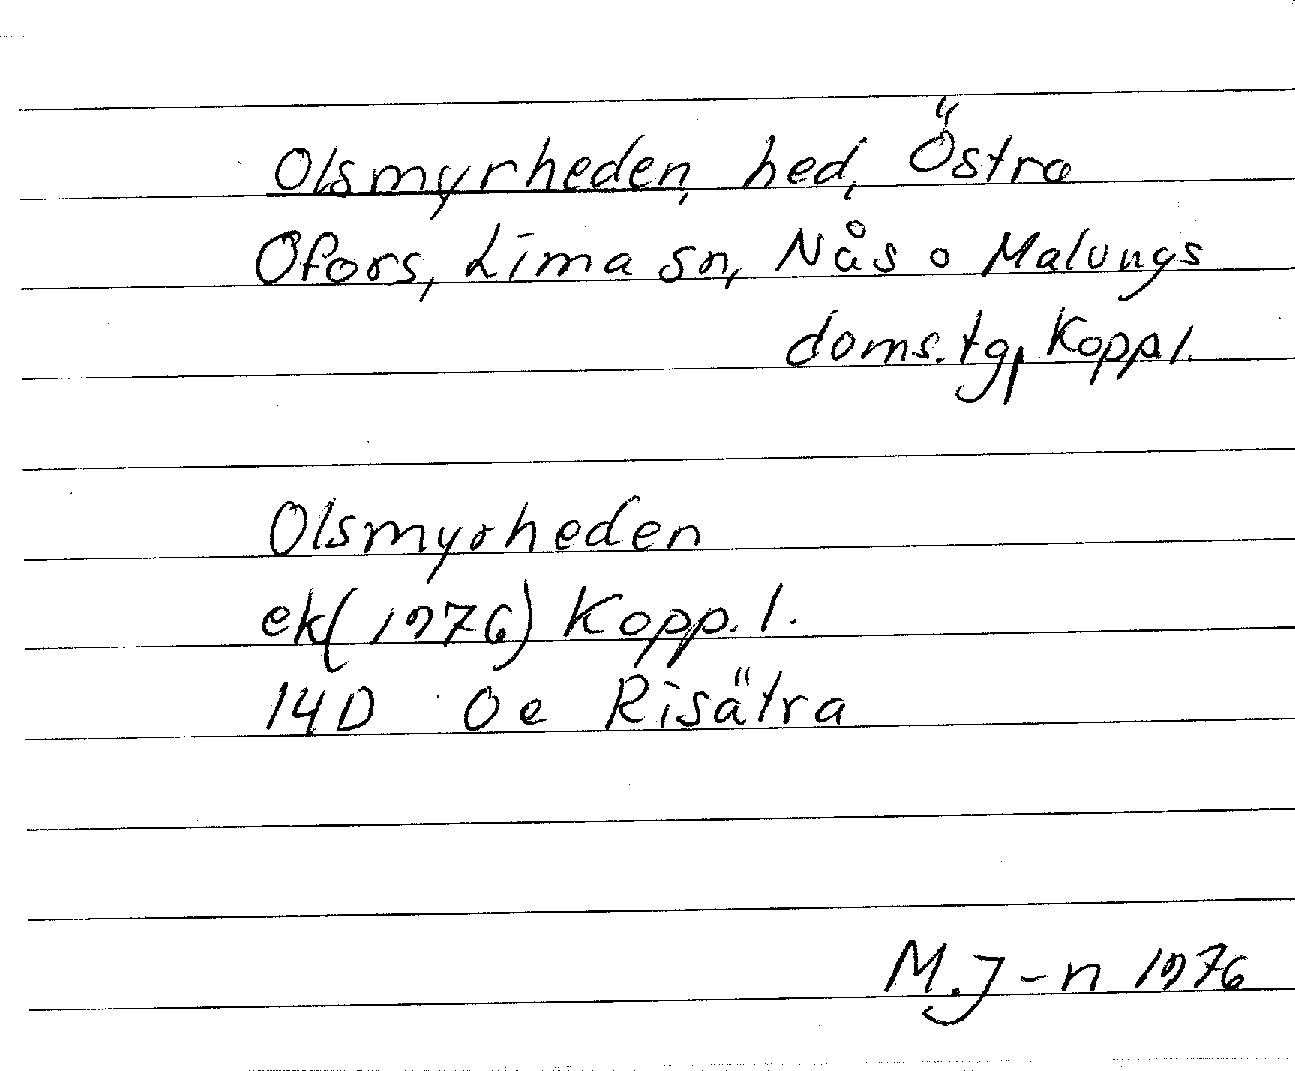 Olsmyrheden, hed, Östra
Ofors, Lima sn, Nås o Malungs
doms.tg, Koppl.
Olsmyrheden
ek(1976) Kopp.l.
14D 0e Risätra
M.J-n 1976